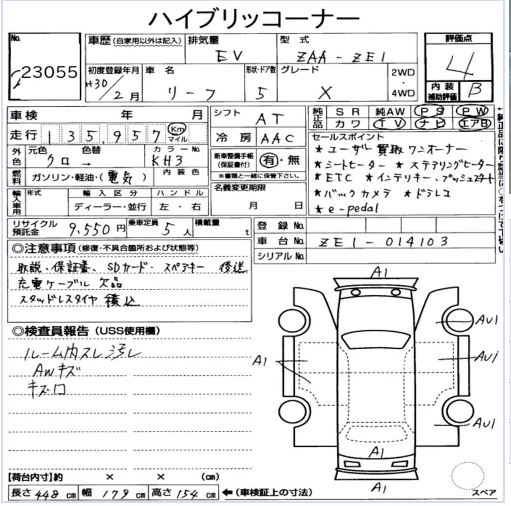 ハイブリッコーナー
No. 23055
車歴 (自家用以外は記入) 排気量 EV 型式 ZAA-ZE1
評価点 4
初度登録年月 H30/2月 車名 リーフ 形状・ドア数 5 グレード X 2WD・4WD
内装補助評価 B
車検 年 月 シフト AT
純正品 SR 純AW PS PW
カワ TV ナビ エアB
走行 135957 Km マイル 冷房 AAC
セールスポイント
★ユーザー買取ワンオーナー
★シートヒーター ★ステアリングヒーター
★ETC ★インテリキー、プッシュスタート
★バックカメラ ★ドラレコ
★e-pedal
外色 元色 クロ → 色替 カラーNo. KH3
新車整備手帳(保証書付) 有・無
※書類と一緒に保管下さい。
燃料 ガソリン・軽油・(電気) 内装色
名義変更期限 月 日
輸入車用 年式 輸入区分 ハンドル
ディーラー・並行 左・右
リサイクル預託金 9,550円 乗車定員 5人 積載量 t
登録No.
車台No. ZE1-014103
シリアルNo.
◎注意事項 (修復・不具合箇所および状態等)
取説、保証書、SDカード、スペアキー 後送
充電ケーブル欠品
スタッドレスタイヤ 積込
◎検査員報告 (USS使用欄)
ルーム内スレ汚レ
AWキズ
キズ
A1
AU1
AU1
A1
AU1
A1
スペア
【荷台内寸】約 × × (cm)
長さ 448 cm 幅 179 cm 高さ 154 cm ←(車検証上の寸法)